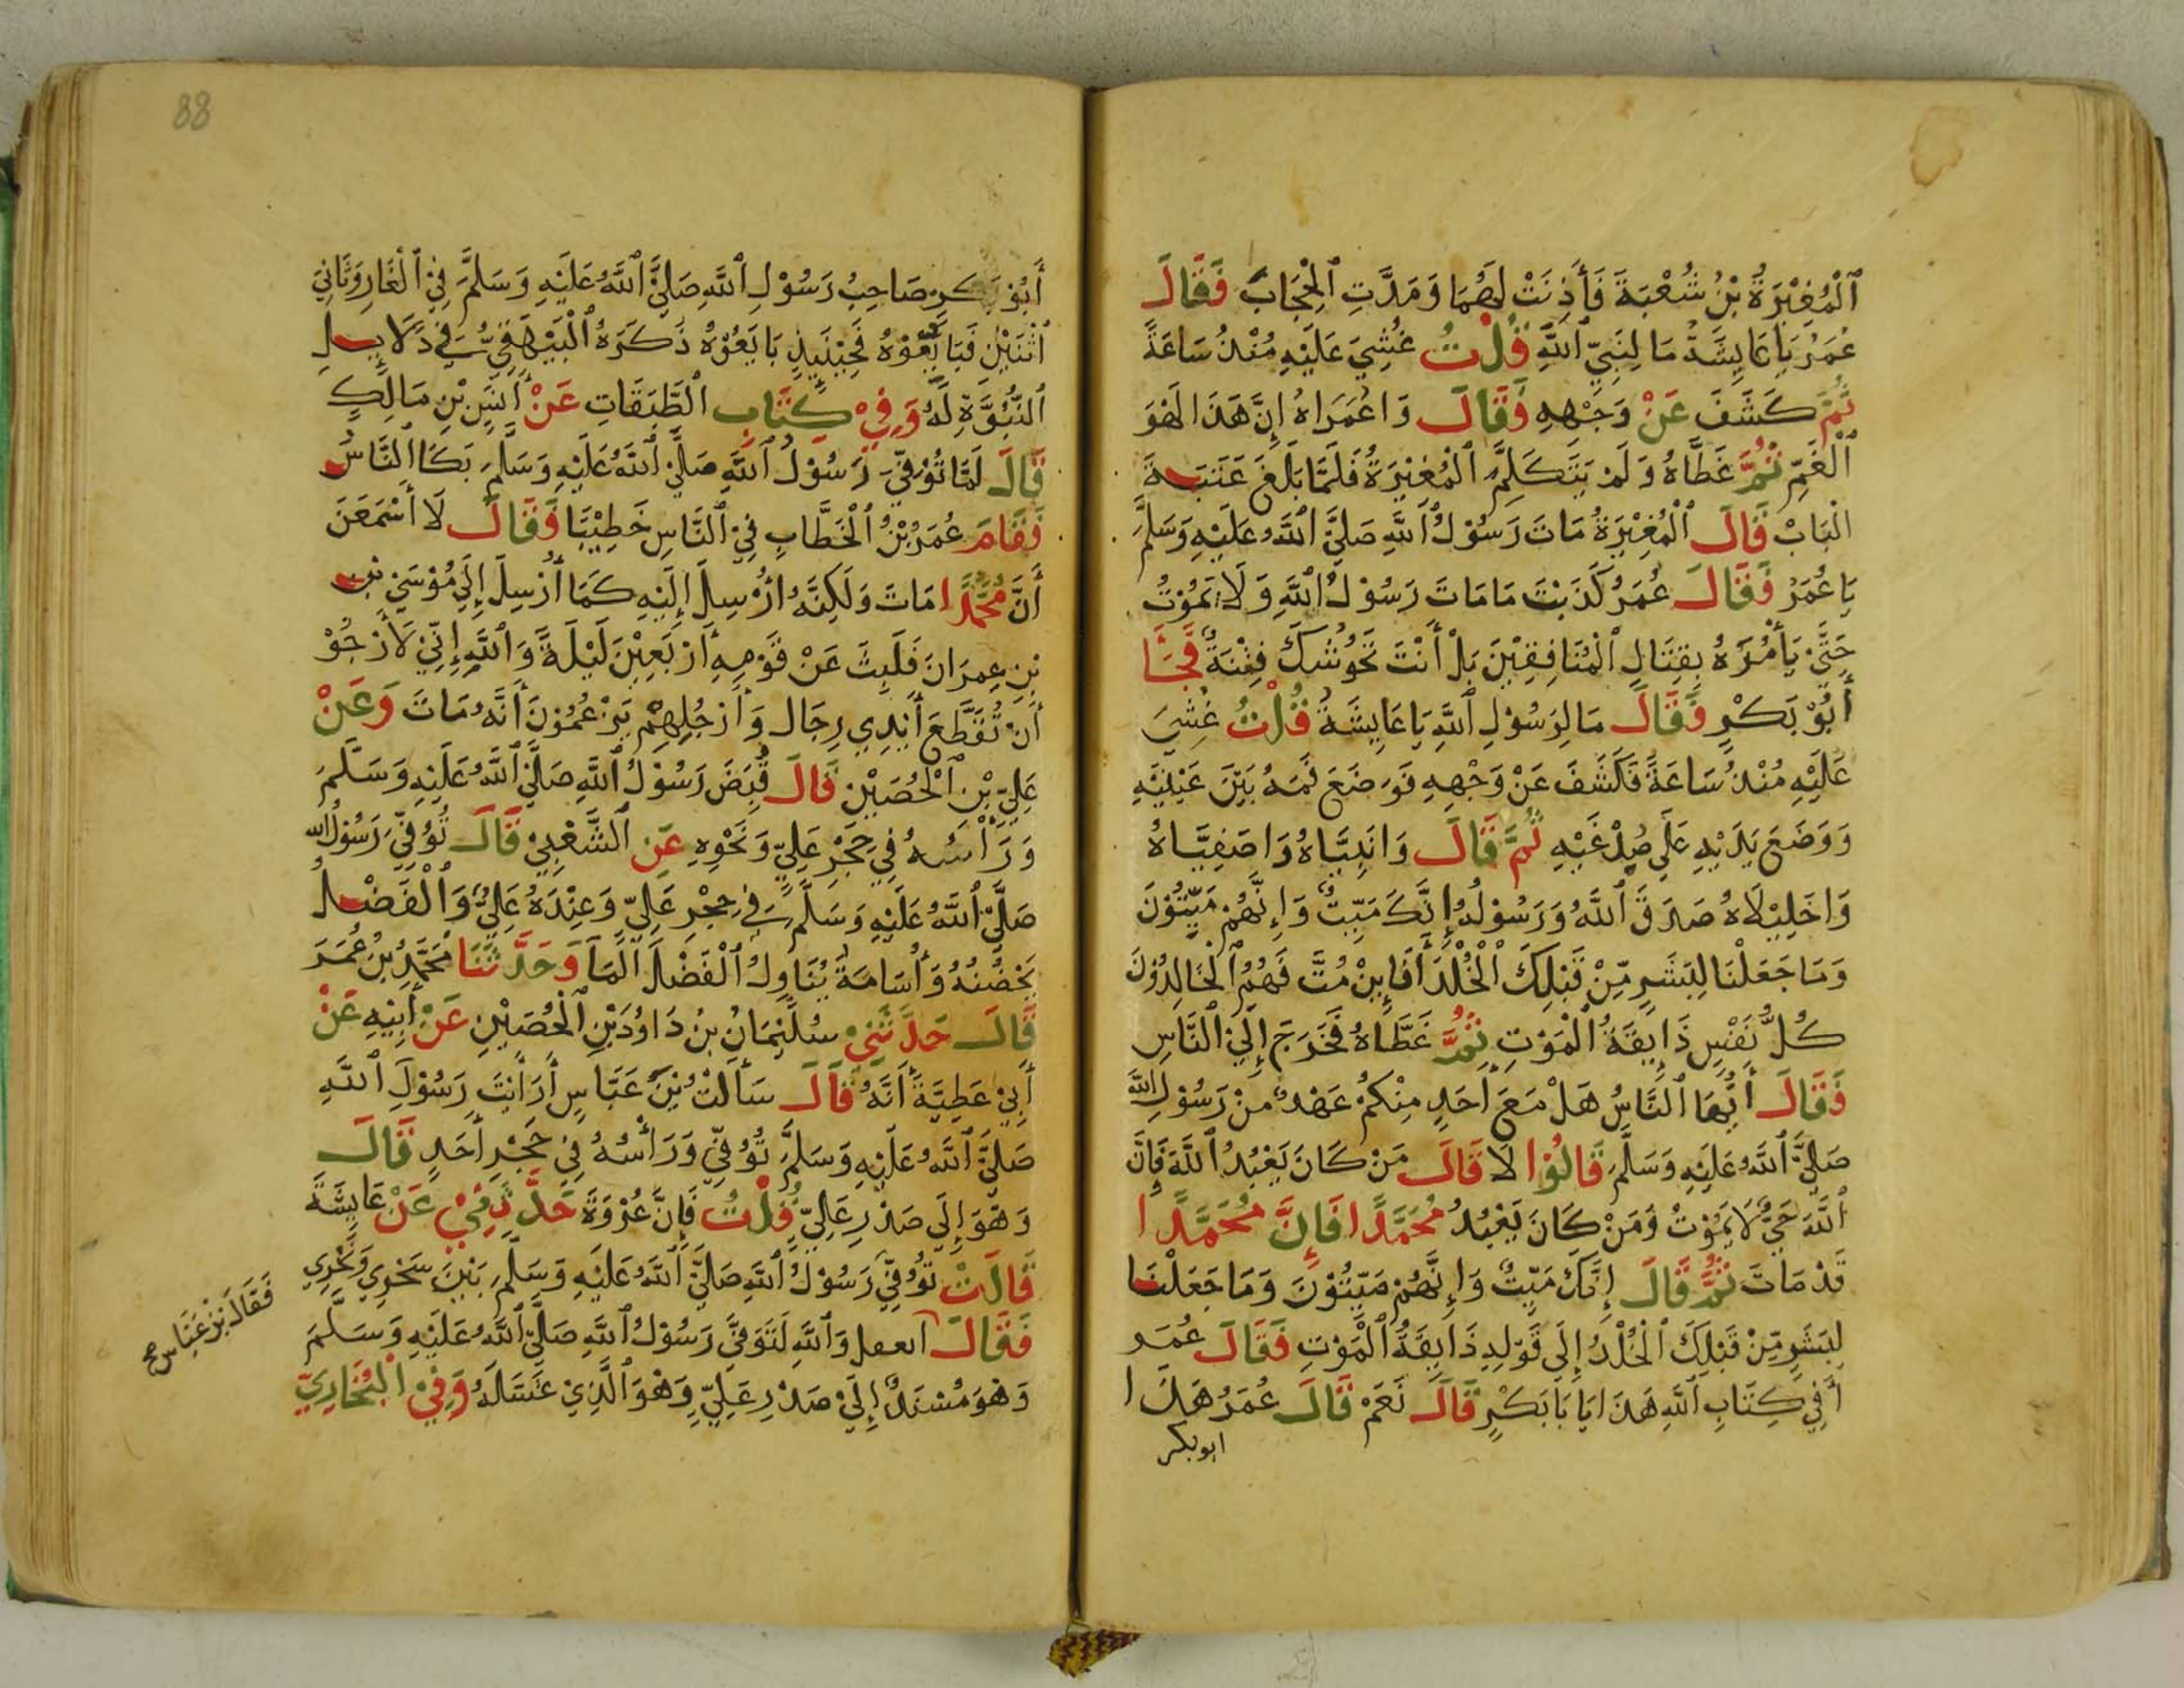 ٱلْمُغِيْرَةُ بْنُ شُعْبَةَ فَأَذِنَتْ لَهُمَا وَمَدَّتِ ٱلْحِجَابَ فَقَالَ
عُمَرُ يَا عَايِشَةُ مَا لِنَبِيِّ ٱللَّهِ قُلْتُ غُشِيَ عَلَيْهِ مُنْذُ سَاعَةً
ثُمَّ كَشَفَ عَنْ وَجْهِهِ فَقَالَ وَاعُمَرَاهُ إِنَّ هَذَا لَهْوَ
ٱلْغَمِّ ثُمَّ غَطَّاهُ وَلَمْ يَتَكَلَّمِ ٱلْمُغِيْرَةُ فَلَمَّا بَلَغَ عَتَبَةَ
الْبَابْ قَالَ ٱلْمُغِيْرَةُ مَاتَ رَسُوْلُ ٱللَّهِ صَلَيَّ ٱللَّهُ عَلَيْهِ وَسَلَّمَ
يَا عُمَرُ فَقَالَ عُمَرُ كَذَبْتَ مَا مَاتَ رَسُوْلُ ٱللَّهِ وَلَا يَمُوْتُ
حَتَّيْ يَأْمُرَهُ بِقِتَالِ ٱلْمُنَافِقِيْنَ بَلْ أَنْتَ تَحُوْشُكَ فِتْنَةٌ فَجَأَ
أَبُوْ بَكْرٍ فَقَالَ مَا لِرَسُوْلِ ٱللَّهِ يَا عَايِشَةُ قُلْتُ غُشِيَ
عَلَيْهِ مُنْذُ سَاعَةً فَكَشَفَ عَنْ وَجْهِهِ فَوَضَعَ فَمَهُ بَيْنَ عَيْنَيْهِ
وَوَضَعَ يَدَيْهِ عَلَي صُدْغَيْهِ ثُمَّ قَالَ وَانَبِيَّاهُ وَاصَفِيَّاهُ
وَاخَلِيْلَاهُ صَدَقَ ٱللَّهُ وَرَسُوْلُهُ إِنَّكَ مَيِّتٌ وَإِنَّهُمْ مَيِّتُوْنَ
وَمَا جَعَلْنَا لِبَشَرٍ مِّنْ قَبْلِكَ ٱلْخُلْدَ أَفَإِيْنْ مُتَّ فَهُمُ ٱلْخَالِدُوْنَ
كُلُّ نَفْسٍ ذَايِقَةُ ٱلْمَوْتِ ثُمَّ غَطَّاهُ فَخَرَجَ إِلَيْ ٱلنَّاسِ
فَقَالَ أَيُّهَا ٱلنَّاسُ هَلْ مَعَ أَحَدٍ مِنْكُمْ عَهْدٌ مِنْ رَسُوْلِ اللَّهِ
صَلَيَّ ٱللَّهُ عَلَيْهِ وَسَلَّمَ قَالُوْا لَا قَالَ مَنْ كَانَ يَعْبُدُ ٱللَّهَ فَإِنَّ
ٱللَّهَ حَيٌّ لَا يَمُوْتُ وَمَنْ كَانَ يَعْبُدُ مُحَمَّدًا فَإِنَّ مُحَمَّدًا
قَدْ مَاتَ ثُمَّ قَالَ إِنَّكَ مَيِّتٌ وَإِنَّهُمْ مَيِّتُوْنَ وَمَا جَعَلْنَا
لِبَشَرٍ مِّنْ قَبْلِكَ ٱلْخُلْدَ إِلَي قَوْلِهِ ذَايِقَةُ ٱلْمَوْتِ فَقَالَ عُمَرُ
أَفِي كِتَابِ ٱللَّهِ هَذَا يَا بَا بَكْرٍ قَالَ نَعَمْ قَالَ عُمَرُ هَذَا
ابوبكر
88
أَبُوْ بَكْرٍ صَاحِبُ رَسُوْلِ ٱللَّهِ صَلَيَّ ٱللَّهُ عَلَيْهِ وَسَلَّمَ فِيْ ٱلْغَارِ وَثَانِيَ
ٱثْنَيْنِ فَبَايِعُوْهُ فَحِيْنَيِذٍ بَايَعُوْهُ ذَكَرَهُ ٱلْبَيْهَقِيُّ فِي دَلَايِلِ
ٱلنُّبُوَّةِ لَهُ وَفِيْ كِتَابِ ٱلطَّبَقَاتِ عَنْ أَنَسِ بْنِ مَالِكٍ
قَالَ لَمَّا تُوُفِّيَ رَسُوْلُ ٱللَّهِ صَلَّيْ ٱللَّهُ عَلَيْهِ وَسَلَّمَ بَكَا ٱلنَّاسُ
فَقَامَ عُمَرُ بْنُ ٱلْخَطَّابِ فِيْ ٱلنَّاسِ خَطِيْبًا فَقَالَ لَا أَسْمَعَنَّ
أَنَّ مُحَمَّدًا مَاتَ وَلَكِنَّهُ أُرْسِلَ إِلَيْهِ كَمَا أُرْسِلَ إِلَي مُوْسَيْ بْنِ
بْنِ عِمْرَانَ فَلَبِثَ عَنْ قَوْمِهِ أَرْبَعِيْنَ لَيْلَةً وَٱللَّهِ إِنِّيْ لَأَرْجُوْ
أَنْ تُقَطَّعَ أَيْدِي رِجَالٍ وَأَرْجُلِهِمْ يَزْعُمُوْنَ أَنَّهُ مَاتَ وَعَنْ
عَلِيِّ بْنِ ٱلْحُصَيْنِ قَالَ قُبِضَ رَسُوْلُ ٱللَّهِ صَلَّيْ ٱللَّهُ عَلَيْهِ وَسَلَّمَ
وَرَأْسُهُ فِيْ حَجْرِ عَلِيٍّ وَنَحْوِهِ عَنِ ٱلشَّعْبِيْ قَالَ تُوُفِّيَ رَسُوْلُ الله
صَلَّيْ ٱللَّهُ عَلَيْهِ وَسَلَّمَ فِي حِجْرِ عَلِيٍّ وَعِنْدَهُ عَلِيٌّ وَٱلْفَضْلُ
يَحْضُنُهُ وَأُسَامَةُ يُنَاوِلُ ٱلْفَضْلَ ٱلْمَآ وَحَدَّثَنَا مُحَمَّدُ بْنُ عُمَرَ
قَالَ حَدَّثَنِيْ سُلَيْمَانُ بْنُ دَاوُدَ بْنِ ٱلْحُصَيْنِ عَنْ أَبِيْهِ عَنْ
أَبِيْ عَطِيَّةَ أَنَّهُ قَالَ سَأَلْتُ بْنَ عَبَّاسٍ أَرَأَيْتَ رَسُوْلَ ٱللَّهِ
صَلَيَّ ٱللَّهُ عَلَيْهِ وَسَلَّمَ تُوُفِّيَ وَرَأْسُهُ فِيْ حَجْرِ أَحَدٍ قَالَ
وَهْوَ إِلَي صَدْرِ عَلِيٍّ قُلْتُ فَإِنَّ عُرْوَةَ حَدَّثَنِيْ عَنْ عَايِشَةَ
قَالَتْ تُوُفِّيَ رَسُوْلُ ٱللَّهِ صَلَيَّ ٱللَّهُ عَلَيْهِ وَسَلَّمَ بَيْنَ سَحْرِي وَنَحْرِي
فَقَالَ بْنُ عَبَّاسٍ صح
فَقَالَ اتعقل وَٱللَّهِ لَتَوَفَّيَ رَسُوْلُ ٱللَّهِ صَلَّيْ ٱللَّهُ عَلَيْهِ وَسَلَّمَ
وَهْوَ مُسْنَدٌ إِلَيْ صَدْرِ عَلِيٍّ وَهْوَ ٱلَّذِيْ غَسَّلَهُ وَفِيْ ٱلْبُخَارِيِّ